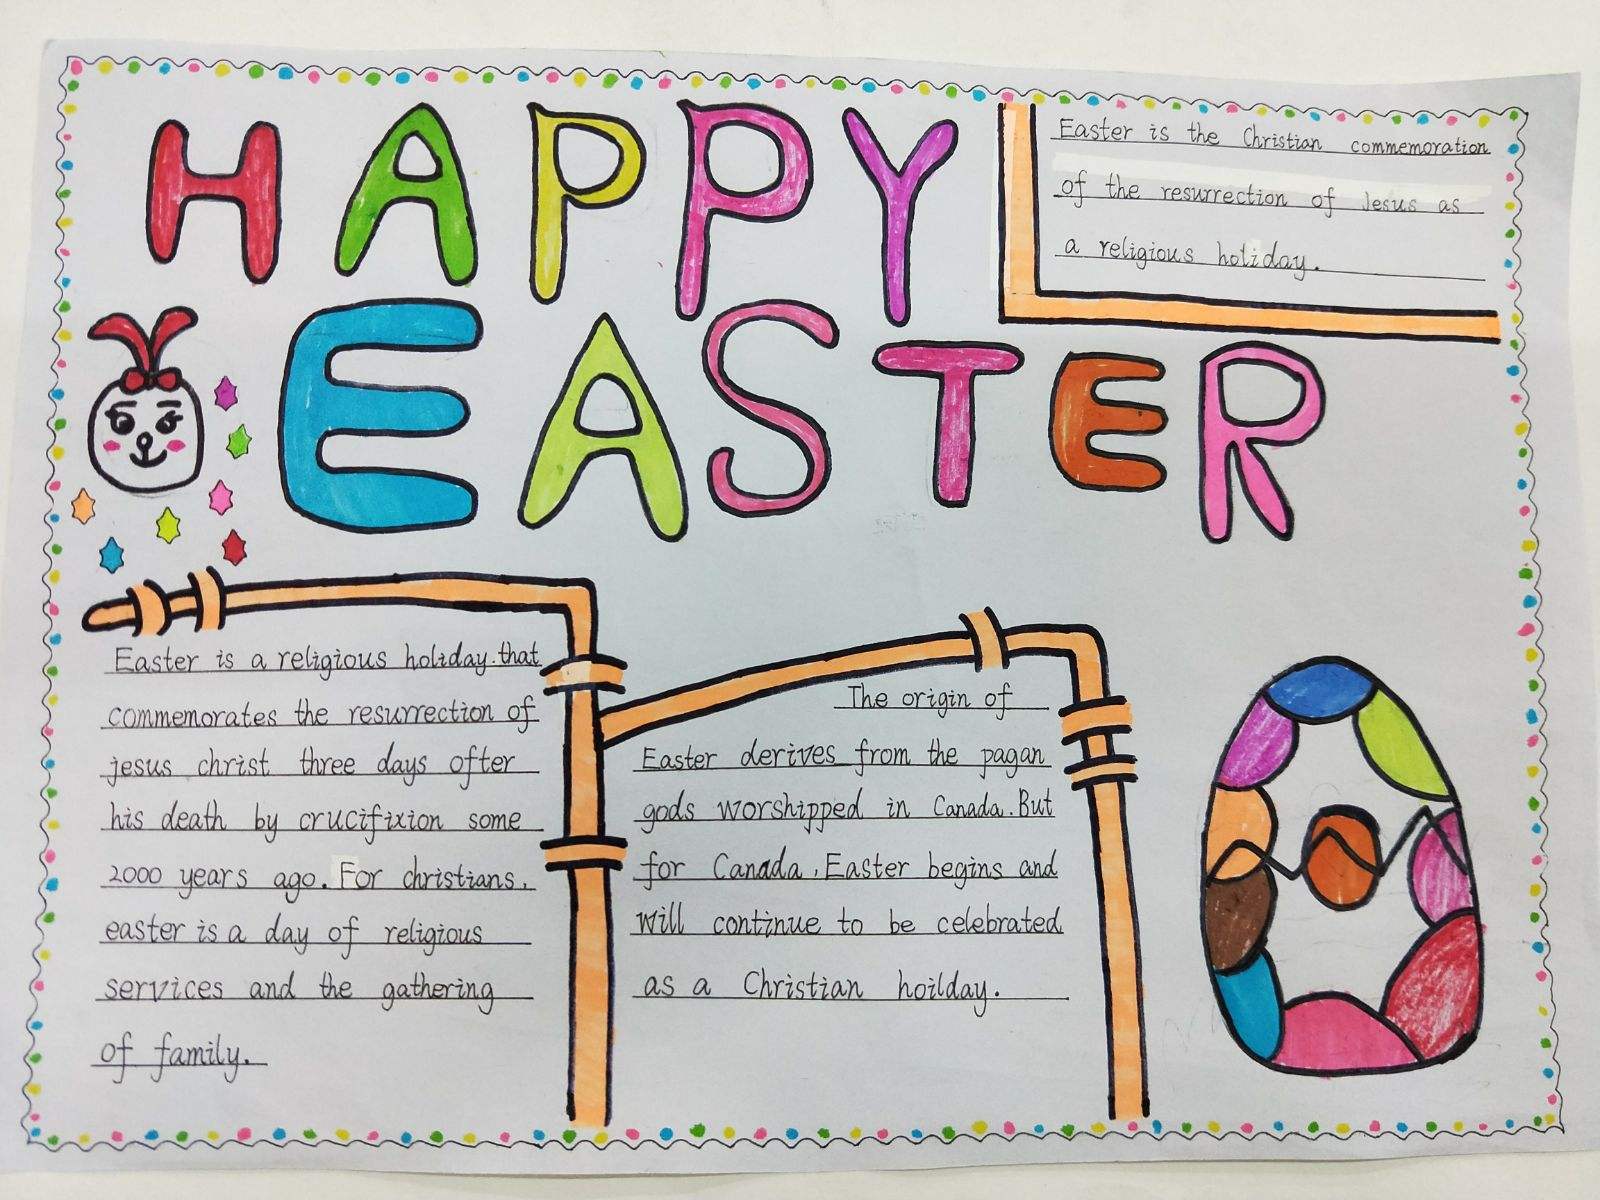 HAPPY
EASTER
Easter is the Christian commemoration
of the resurrection of Jesus as
a religious holiday.
Easter is a religious holiday. that
commemorates the resurrection of
jesus christ three days ofter
his death by crucifixion some
2000 years ago. For christians,
easter is a day of religious
services and the gathering
of family.
The origin of
Easter derives from the pagan
gods worshipped in Canada. But
for Canada, Easter begins and
will continue to be celebrated
as a Christian hoilday.